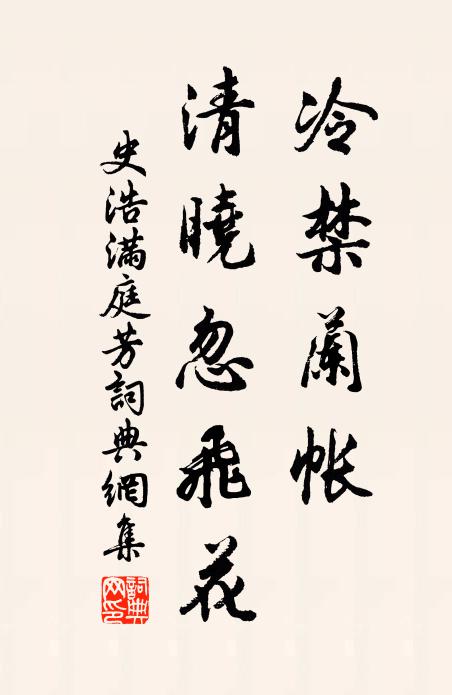 冷禁蘭帳
清曉忽飛花
史浩滿庭芳詞典網集
詞典网印